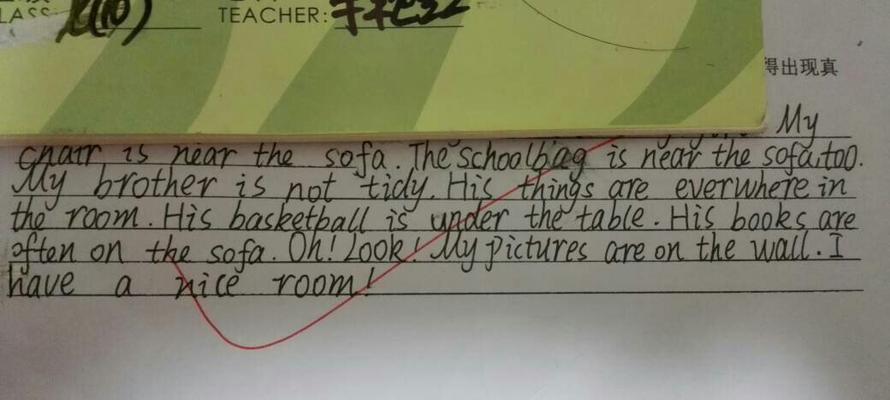 TEACHER:
得出现真
My
chair is near the sofa. The schoolbag is near the sofa, too.
My brother is not tidy. His things are everwhere in
the room. His basketball is under the table. His books are
often on the sofa. Oh! Look! My pictures are on the wall. I
have a nice room!